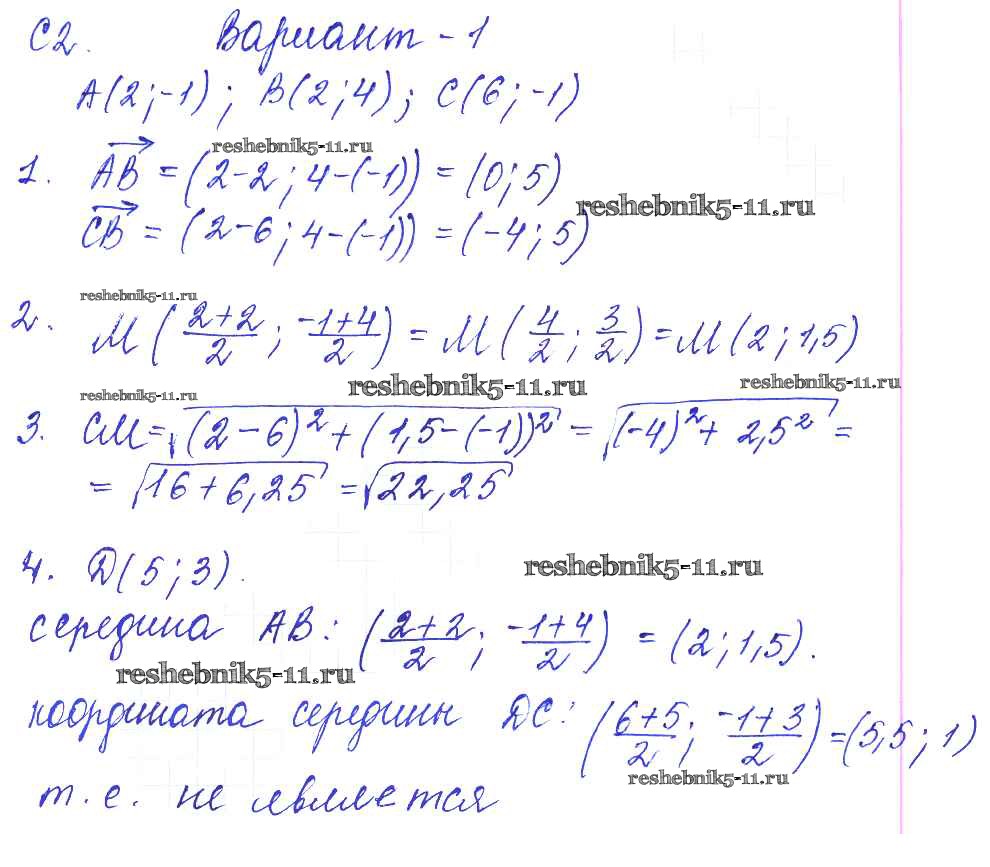 С2. Вариант - 1
А(2;-1); В(2;4); С(6;-1)
reshebnik5-11.ru
1. AB = (2-2; 4-(-1)) = (0; 5)
reshebnik5-11.ru
CB = (2-6; 4-(-1)) = (-4; 5)
reshebnik5-11.ru
2. M((2+2)/2; (-1+4)/2) = M(4/2; 3/2) = M(2; 1,5)
reshebnik5-11.ru reshebnik5-11.ru
reshebnik5-11.ru
3. CM = √((2-6)² + (1,5-(-1))²) = √((-4)² + 2,5²) =
= √(16 + 6,25) = √(22,25)
4. D(5; 3).
reshebnik5-11.ru
середина AB: ((2+2)/2; (-1+4)/2) = (2; 1,5).
reshebnik5-11.ru
координата середины DC: ((6+5)/2; (-1+3)/2) = (5,5; 1)
reshebnik5-11.ru
т.е. не является